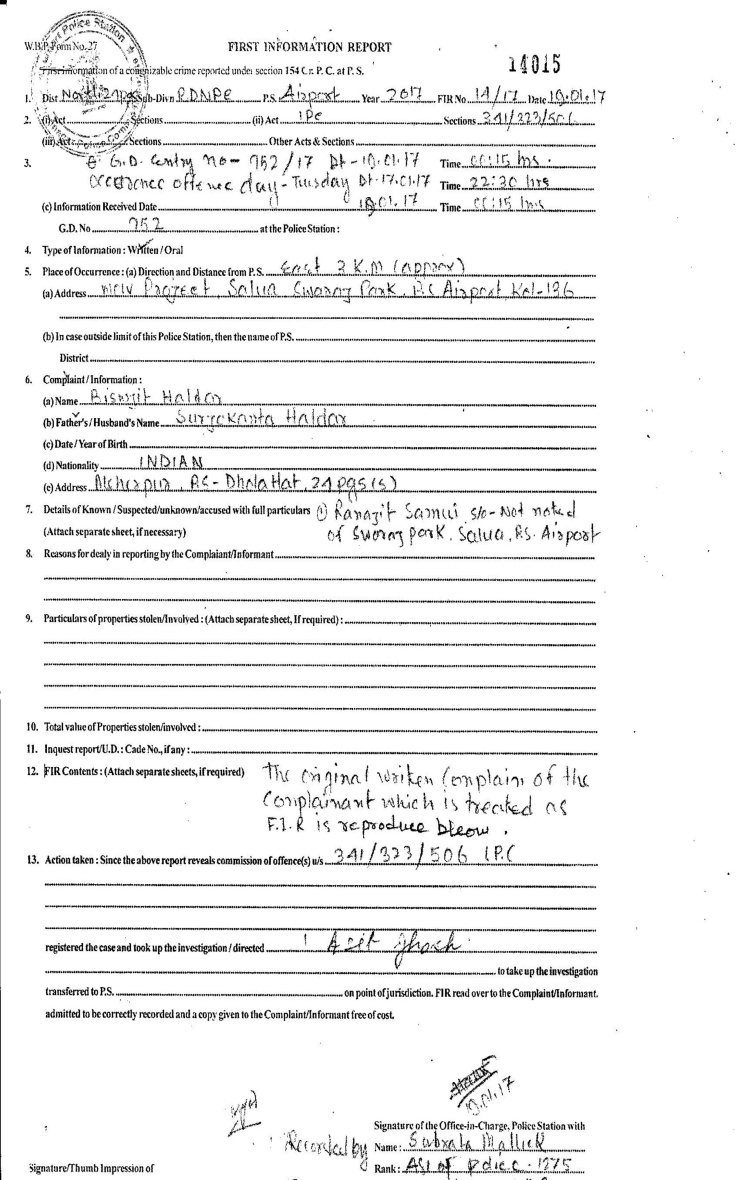 W.B.P. Form No. 27
FIRST INFORMATION REPORT
14015
First information of a cognizable crime reported under section 154 Cr. P. C. at P. S.
1. Dist North 24 pgs Sub-Divn P.S. Airport Year 2017 FIR No 14/17 Date
2. (i) Act Sections (ii) Act IPC Sections 341/323/506
(iii) Act Sections Other Acts & Sections
3. G.D. entry no - 952/17 Dt - Time 00:15 hrs.
occurrence offence day - Tuesday Dt - 17.01.17 Time 22:30 hrs
(c) Information Received Date Time 00:15 hrs
G.D. No 952 at the Police Station :
4. Type of Information : Written / Oral
5. Place of Occurrence : (a) Direction and Distance from P.S. East 3 K.M (approx)
(a) Address New Project Salua Swaraj Park, P.S Airport, Kol-136
(b) In case outside limit of this Police Station, then the name of P.S.
District
6. Complaint / Information :
(a) Name Biswajit Haldar
(b) Father's / Husband's Name Haldar
(c) Date / Year of Birth
(d) Nationality INDIAN
(e) Address P.S- DholaHat, 24 pgs (s)
7. Details of Known / Suspected/unknown/accused with full particulars 1) Ranajit Samui s/o - Not noted
(Attach separate sheet, if necessary) of Swaraj park, Salua, P.S. Airport
8. Reasons for dealy in reporting by the Complaiant/Informant
9. Particulars of properties stolen/Involved : (Attach separate sheet, If required) :
10. Total value of Properties stolen/involved :
11. Inquest report/U.D. : Cade No., if any :
12. FIR Contents : (Attach separate sheets, if required) The original wriken Complain of the
Complainant which is treated as
F.I.R is reproduce bleow.
13. Action taken : Since the above report reveals commission of offence(s) u/s 341/323/506 IPC
registered the case and took up the investigation / directed Asit Ghosh
to take up the investigation
transferred to P.S. on point of jurisdiction. FIR read over to the Complaint/Informant.
admitted to be correctly recorded and a copy given to the Complaint/Informant free of cost.
Signature of the Office-in-Charge, Police Station with
Recorded by Name : Subrata Mallick
Signature/Thumb Impression of Rank : ASI of Police